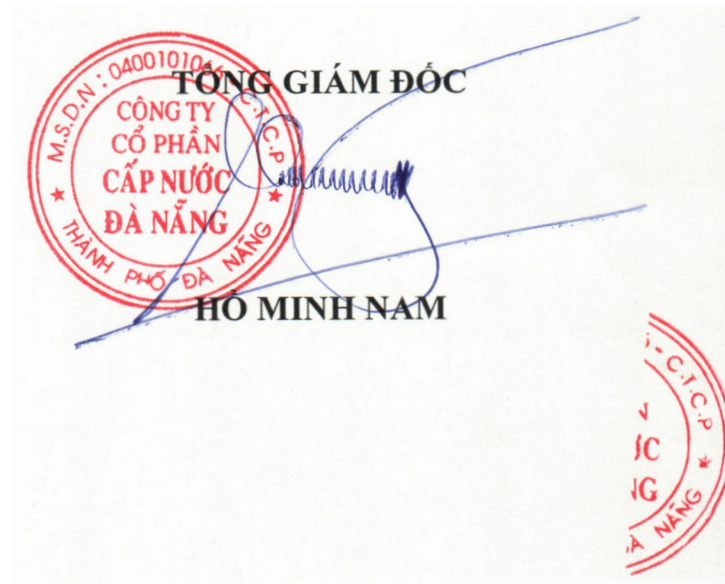 TỔNG GIÁM ĐỐC
M.S.D.N: 0400101066 C.T.C.P
CÔNG TY
CỔ PHẦN
CẤP NƯỚC
ĐÀ NẴNG
THÀNH PHỐ ĐÀ NẴNG
HỒ MINH NAM
- C.T.C.P
ÀNG
ĐÀ NẴNG